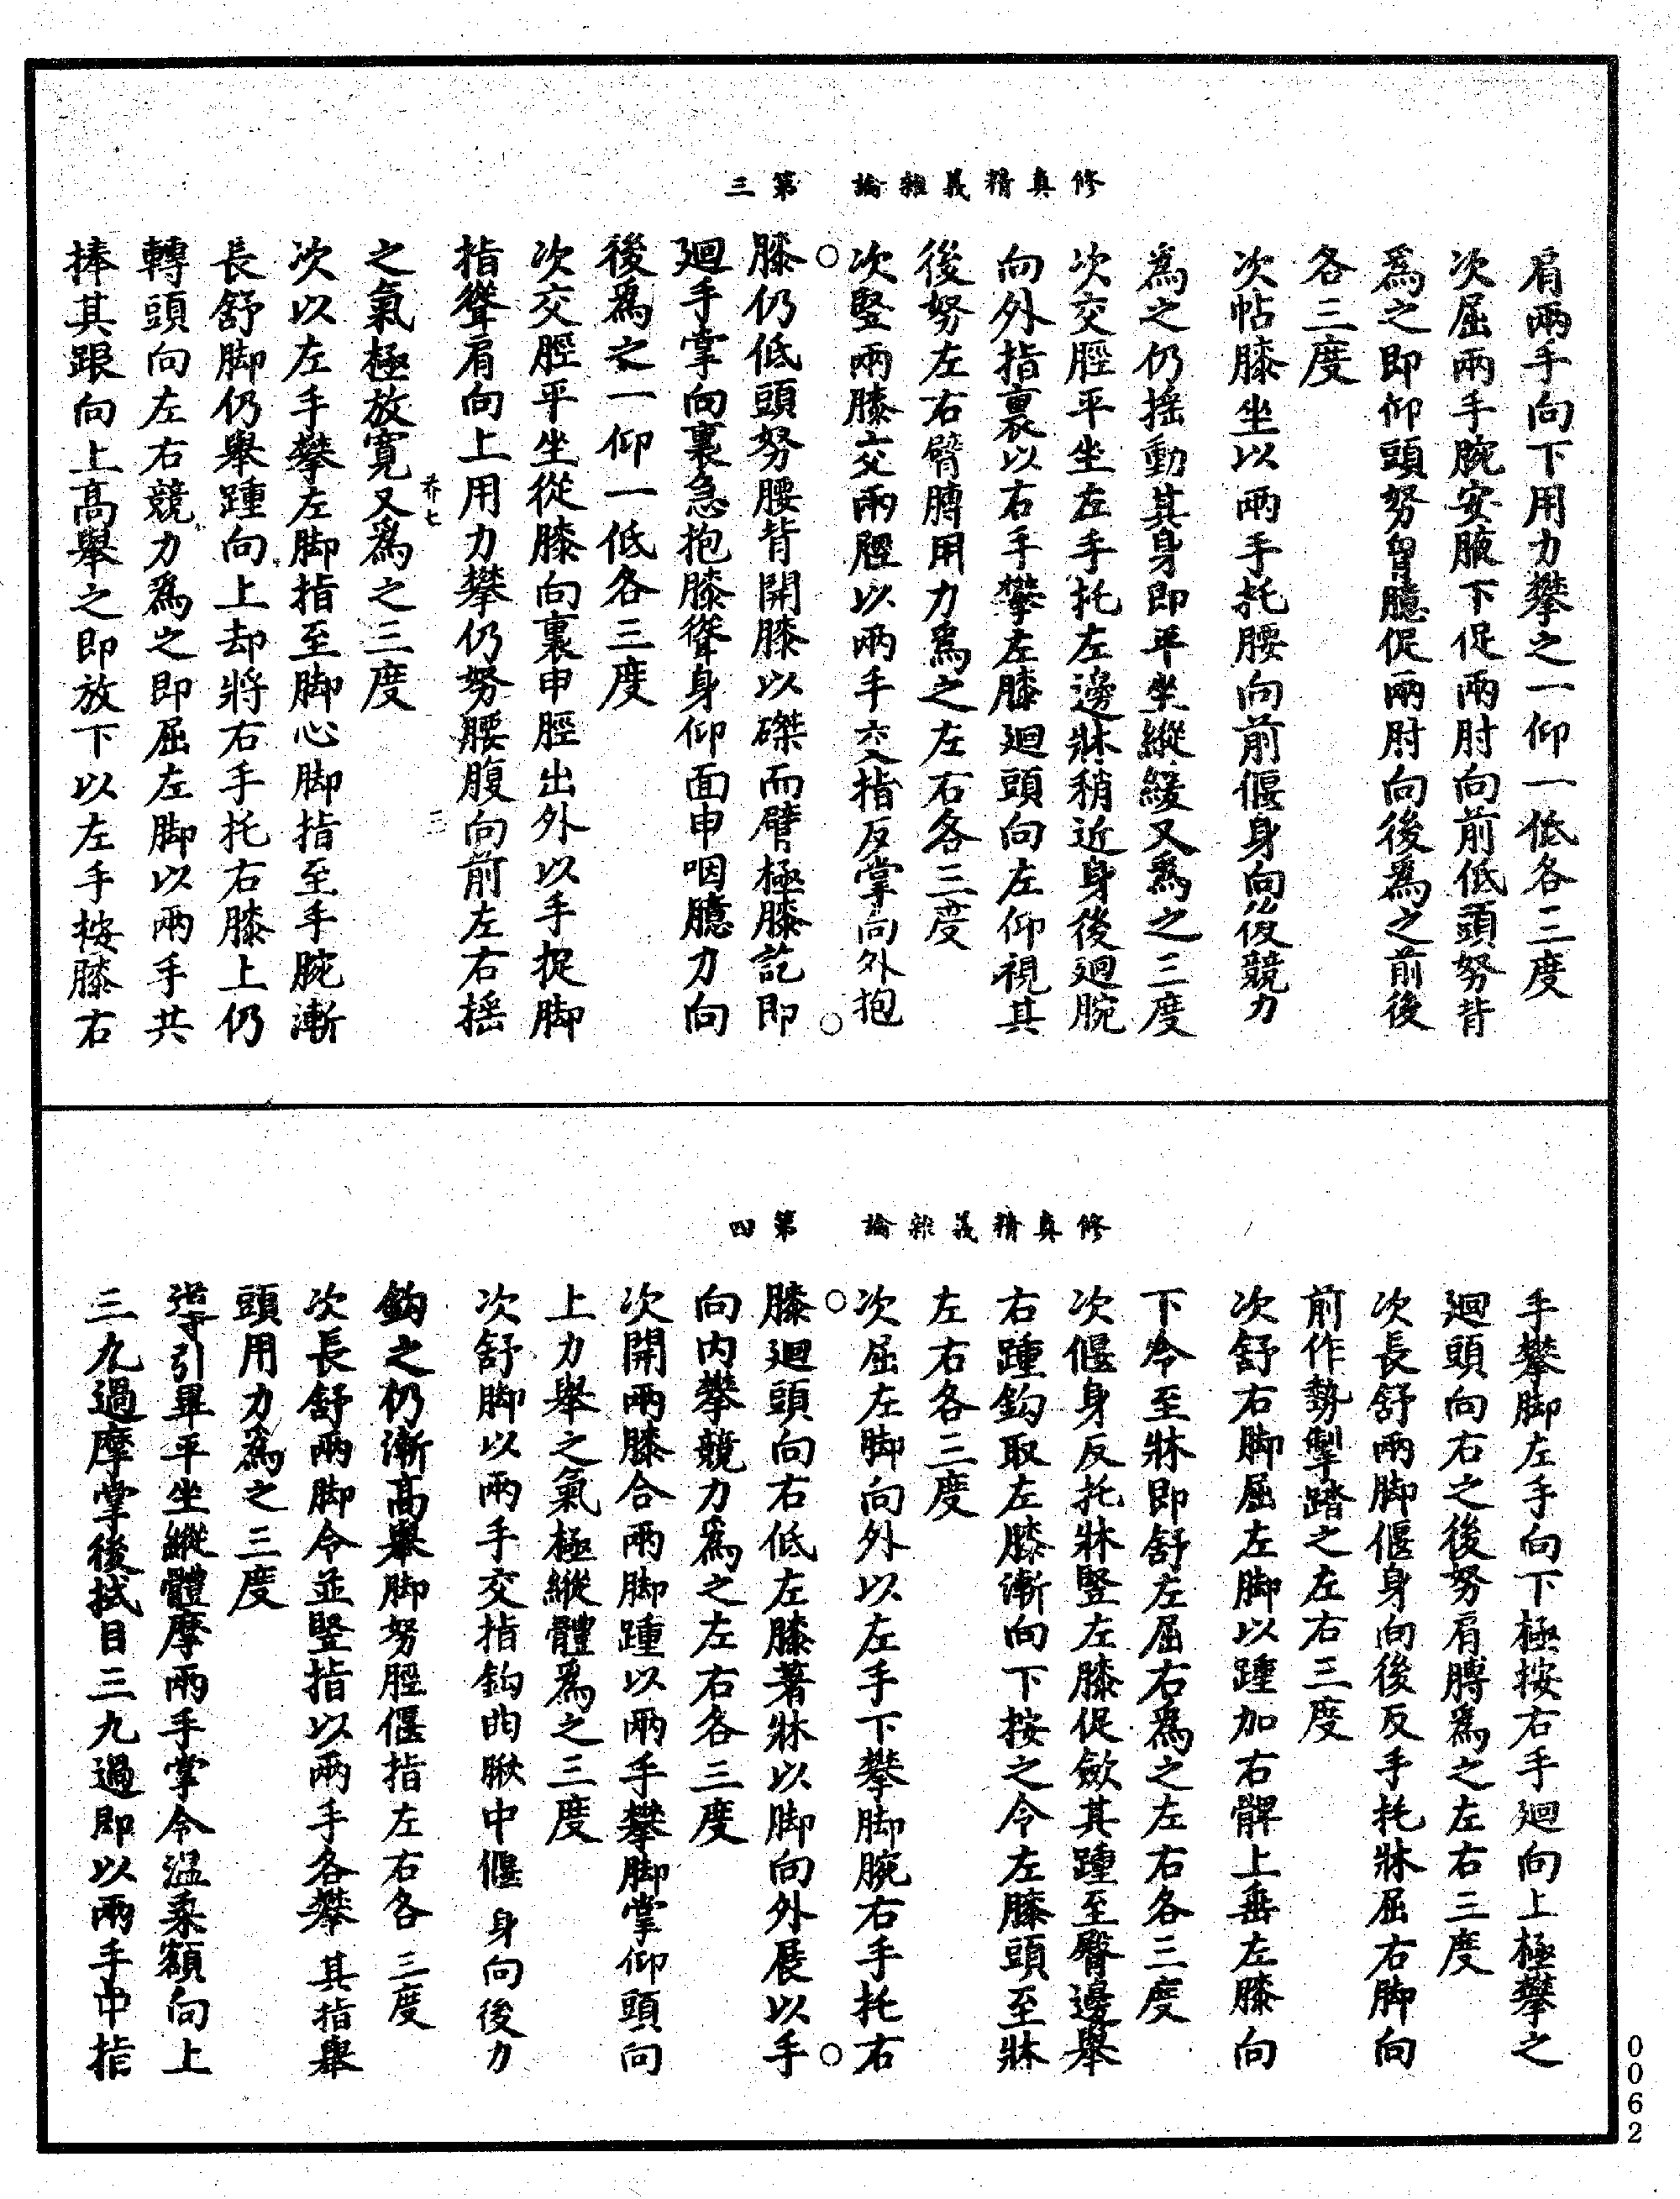 修真精義雜論　第三
肩兩手向下用力攀之一仰一低各三度
次屈兩手腕安腋下促兩肘向前低頭努背
爲之即仰頭努胷臆促兩肘向後爲之前後
各三度
次帖膝坐以兩手托腰向前偃身向後競力
爲之仍搖動其身即平坐縱緩又爲之三度
次交脛平坐左手托左邊牀稍近身後迴腕
向外指裏以右手攀左膝迴頭向左仰視其
後努左右臂膊用力爲之左右各三度
次竪兩膝交兩脛以兩手交指反掌向外抱
膝仍低頭努腰背開膝以磔而臂極膝訖即
迴手掌向裏急抱膝聳身仰面申咽臆力向
後爲之一仰一低各三度
次交脛平坐從膝向裏申脛出外以手捉脚
指聳肩向上用力攀仍努腰腹向前左右搖
芥七　三
之氣極放寛又爲之三度
次以左手攀左脚指至脚心脚指至手腕漸
長舒脚仍舉踵向上却將右手托右膝上仍
轉頭向左右競力爲之即屈左脚以兩手共
捧其跟向上高舉之即放下以左手按膝右
修真精義雜論　第四
手攀脚左手向下極按右手迴向上極攀之
迴頭向右之後努肩膊爲之左右三度
次長舒兩脚偃身向後反手托牀屈右脚向
前作勢掣踏之左右三度
次舒右脚屈左脚以踵加右髀上垂左膝向
下令至牀即舒左屈右爲之左右各三度
次偃身反托牀竪左膝促斂其踵至臀邊舉
右踵鈎取左膝漸向下按之令左膝頭至牀
左右各三度
次屈左脚向外以左手下攀脚腕右手托右
膝迴頭向右低左膝著牀以脚向外展以手
向内攀競力爲之左右各三度
次開兩膝合兩脚踵以兩手攀脚掌仰頭向
上力舉之氣極縱體爲之三度
次舒脚以兩手交指鈎曲䐐中偃身向後力
鈎之仍漸高舉脚努脛偃指左右各三度
次長舒兩脚令並竪指以兩手各攀其指舉
頭用力爲之三度
導引畢平坐縱體摩兩手掌令温柔額向上
三九過摩掌後拭目三九過即以兩手中指
0062